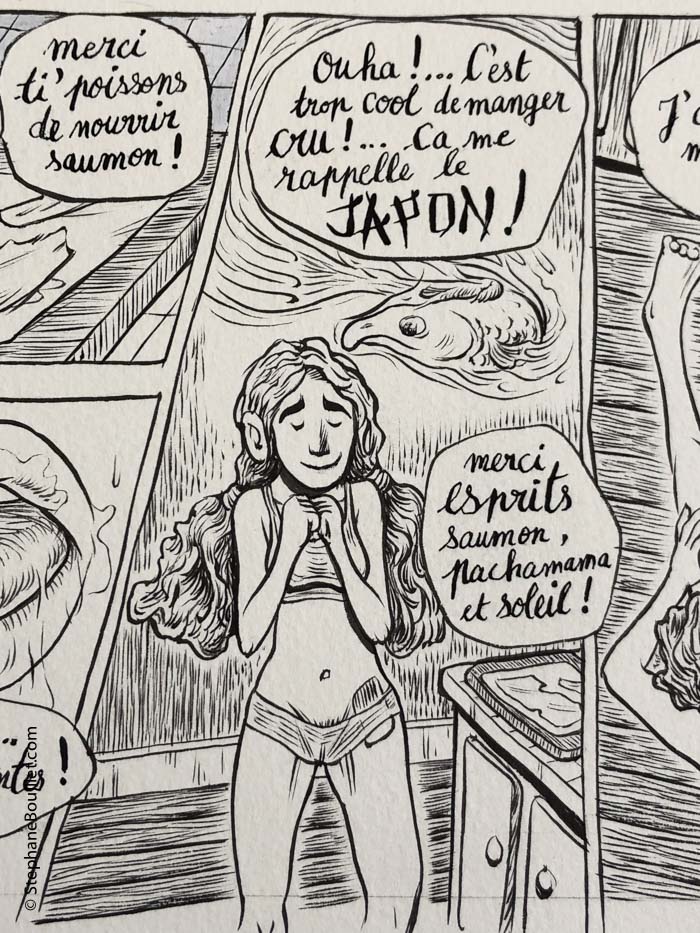 merci
ti' poissons
de nourrir
saumon !
Ouha !... C'est
trop cool de manger
cru !... Ca me
rappelle le
JAPON !
merci
esprits
saumon,
pachamama
et soleil !
J'
© StephaneBouillet.com